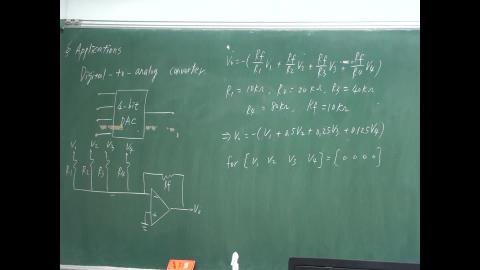 Applications
Digital-to-analog converter
4-bit
DAC
V1 V2 V3 V4
R1 R2 R3 R4
Rf
Vo
Vo = -(Rf/R1 V1 + Rf/R2 V2 + Rf/R3 V3 + Rf/R4 V4)
R1 = 10kΩ, R2 = 20kΩ, R3 = 40kΩ
R4 = 80kΩ, Rf = 10kΩ
⇒ Vo = -(V1 + 0.5V2 + 0.25V3 + 0.125V4)
for [V1 V2 V3 V4] = [0 0 0 0]